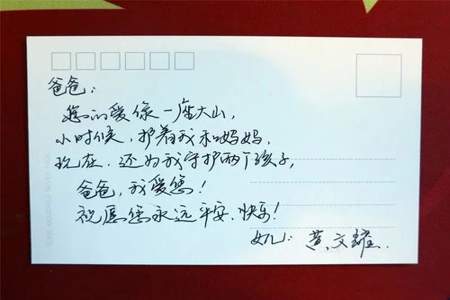 爸爸：
您的爱像一座大山，
小时候，护着我和妈妈，
现在，还为我守护两个孩子，
爸爸，我爱您！
祝愿您永远平安、快乐！
女儿：黄文耀